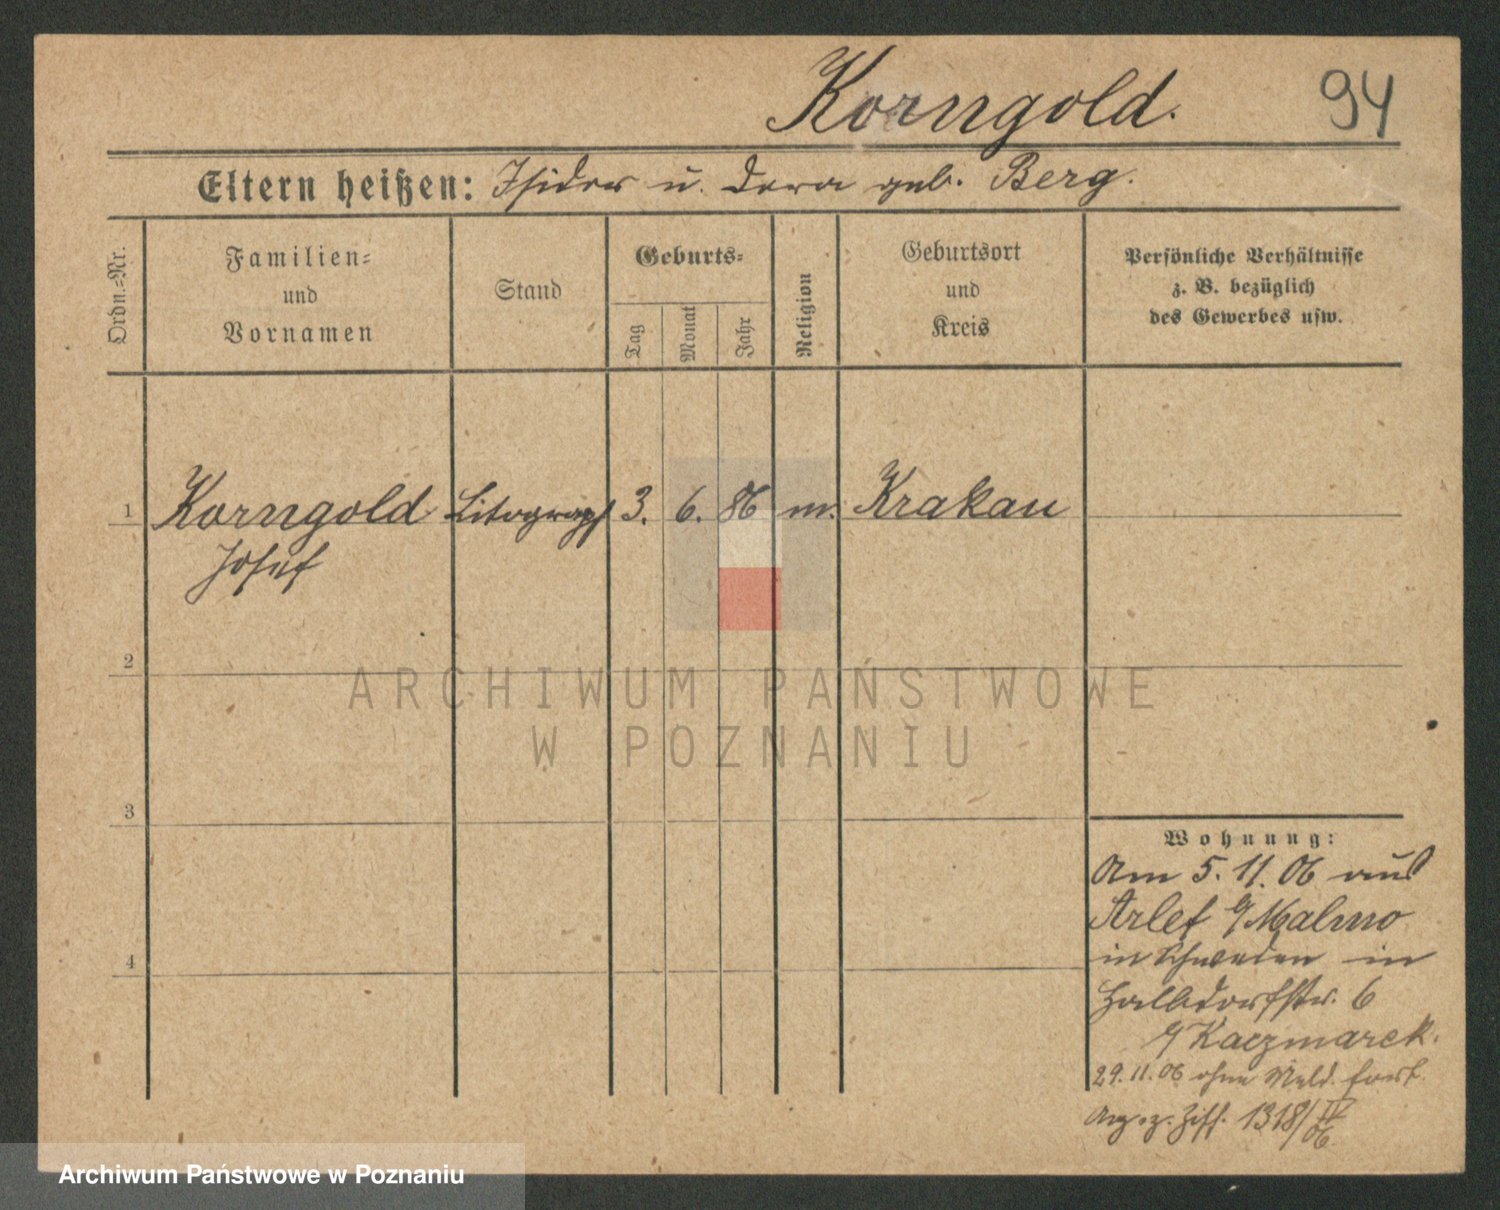 Korngold. 94
Eltern heißen: Isidor u. Dora geb. Berg.
Ordn.-Nr.
Familien-
und
Vornamen
Stand
Geburts-
Tag
Monat
Jahr
Religion
Geburtsort
und
Kreis
Persönliche Verhältnisse
z. B. bezüglich
des Gewerbes usw.
1 Korngold Litograph 3. 6. 86 m. Krakau
Josef
2
3
4
Wohnung:
Am 5. 11. 06 aus
Malmo
in Schweden in
Halbdorfstr. 6
Kaczmarek.
29. 11. 06 ohne Meld. fort.
z. Ziff. 1318/IV
06.
ARCHIWUM PAŃSTWOWE
W POZNANIU
Archiwum Państwowe w Poznaniu